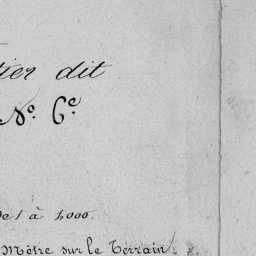 tier dit
No. 6e.
de 1 à 1,000.
Mètre sur le Terrain.